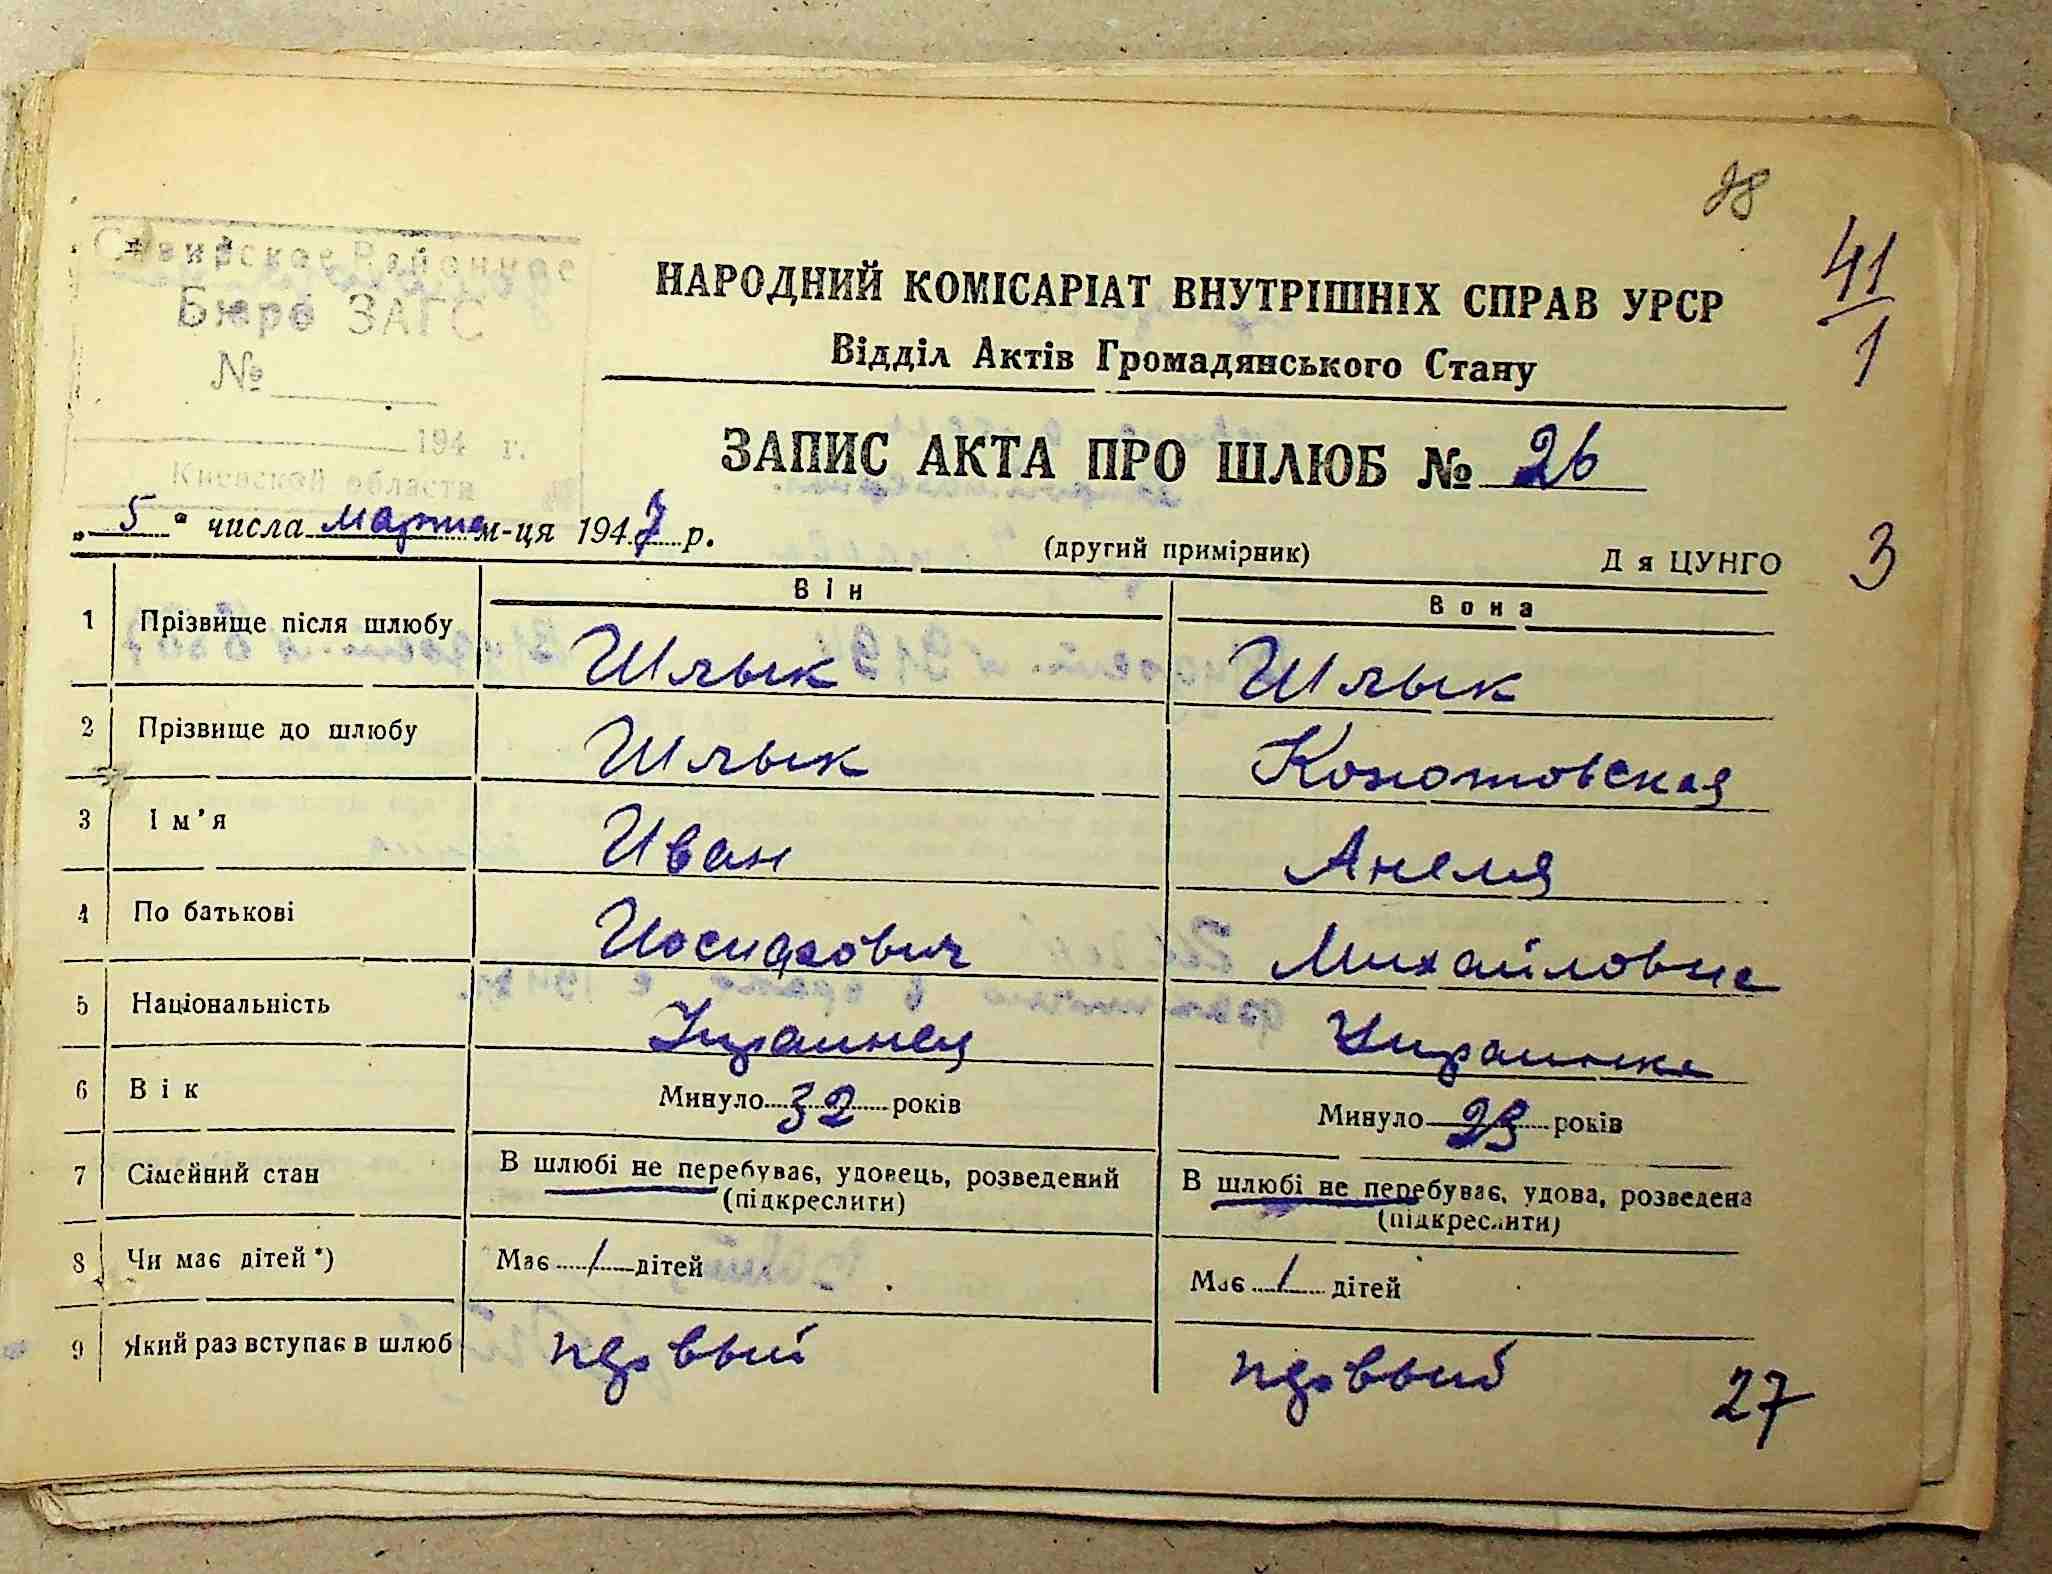 28
41
1
Сквирское Районное
Бюро ЗАГС
№
194 г.
Киевской области
НАРОДНИЙ КОМІСАРІАТ ВНУТРІШНІХ СПРАВ УРСР
Відділ Актів Громадянського Стану
ЗАПИС АКТА ПРО ШЛЮБ № 26
„5" числа марта м-ця 1947 р.
(другий примірник)
Д я ЦУНГО
3
Він
Вона
1 Прізвище після шлюбу Шлык Шлык
2 Прізвище до шлюбу Шлык Конотовская
3 Ім'я Иван Анеля
4 По батькові Иосифович Михайловна
5 Національність Украинец Украинка
6 Вік Минуло 32 років Минуло 23 років
7 Сімейний стан В шлюбі не перебуває, удовець, розведений В шлюбі не перебуває, удова, розведена
(підкреслити) (підкреслити)
8 Чи має дітей *) Має / дітей Має / дітей
9 Який раз вступає в шлюб первый первый
27